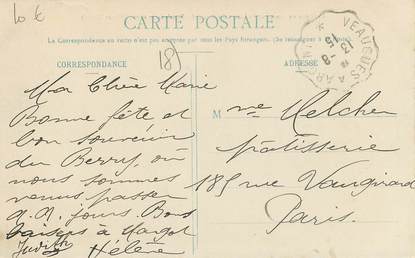 10 €
CARTE POSTALE
La Correspondance au recto n'est pas acceptée par tous les Pays Étrangers. (Se renseigner à la Poste)
18
CORRESPONDANCE
ADRESSE
VEAUGUES A ARGENT
13-8
15
Ma Chère Marie
Bonne fête et
bon souvenir
du Berry, où
nous sommes
venus passer
q.q. jours. Bons
baisers à Margot
Judith
Hélène
Mme Melcher
Pâtisserie
185 rue Vaugirard
Paris.